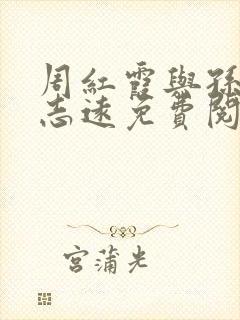 周紅霞與孫
志遠免費閱
宮蒲光